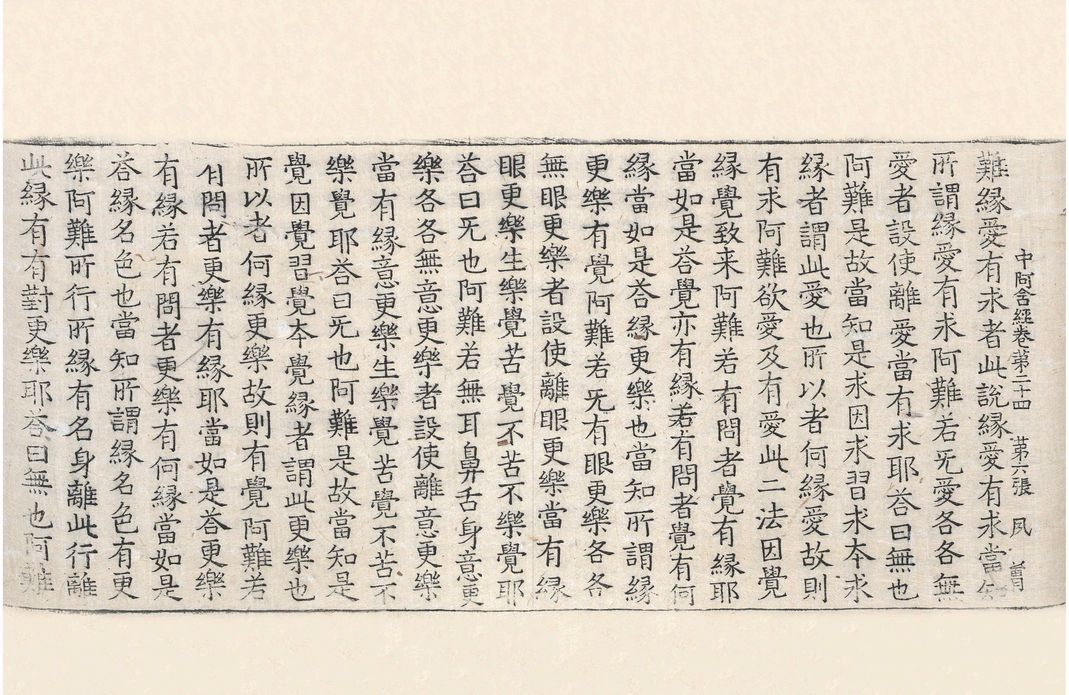 中阿含經卷第二十四 第六張 夙
難縁愛有求者此說縁愛有求當知
所謂縁愛有求阿難若旡愛各各無
愛者設使離愛當有求耶荅曰無也
阿難是故當知是求因求習求本求
縁者謂此愛也所以者何縁愛故則
有求阿難欲愛及有愛此二法因覺
縁覺致来阿難若有問者覺有縁耶
當如是荅覺亦有縁若有問者覺有何
縁當如是荅縁更樂也當知所謂縁
更樂有覺阿難若旡有眼更樂各各
無眼更樂者設使離眼更樂當有縁
眼更樂生樂覺苦覺不苦不樂覺耶
荅曰旡也阿難若無耳鼻舌身意更
樂各各無意更樂者設使離意更樂
當有縁意更樂生樂覺苦覺不苦不
樂覺耶荅曰旡也阿難是故當知是
覺因覺習覺本覺縁者謂此更樂也
所以者何縁更樂故則有覺阿難若
有問者更樂有縁耶當如是荅更樂
有縁若有問者更樂有何縁當如是
荅縁名色也當知所謂縁名色有更
樂阿難所行所縁有名身離此行離
此縁有有對更樂耶荅曰無也阿難